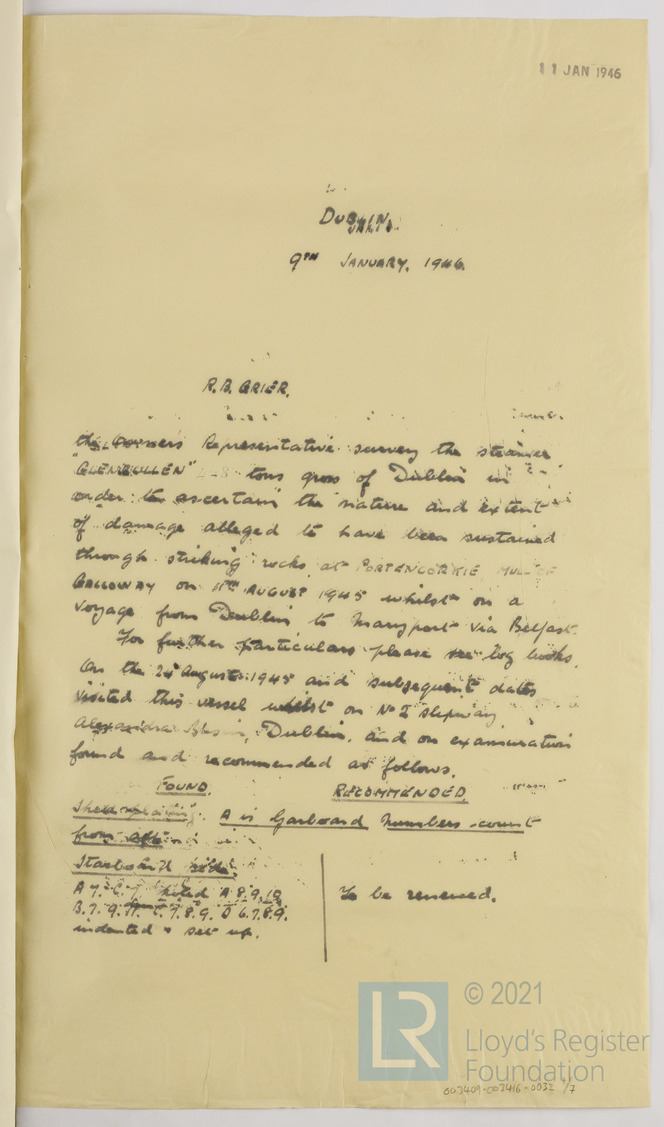 11 JAN 1946
DUBLIN.
9TH JANUARY, 1946.
R.B. GRIER.
the Owners Representative survey the steamer
"GLENCULLEN" tons gross of Dublin in
order to ascertain the nature and extent
of damage alleged to have been sustained
through striking rocks at PORTENCORKIE MULL OF
GALLOWAY on 11TH AUGUST 1945 whilst on a
voyage from Dublin to Maryport via Belfast.
For further particulars please see log books.
On the 24 August 1945 and subsequent dates
visited this vessel whilst on No 2 Slipway
Alexandra Basin, Dublin, and on examination
found and recommended as follows.
FOUND. RECOMMENDED.
Shell plating. A is Garboard numbers count
from aft
Starboard side.
A 7. C. 7. holed A 8. 9. 10
B. 7. 9. 11. C. 7. 8. 9. D 6. 7. 8. 9.
indented & set up.
To be renewed.
LR
© 2021
Lloyd's Register
Foundation
003409-003416-0032 1/7